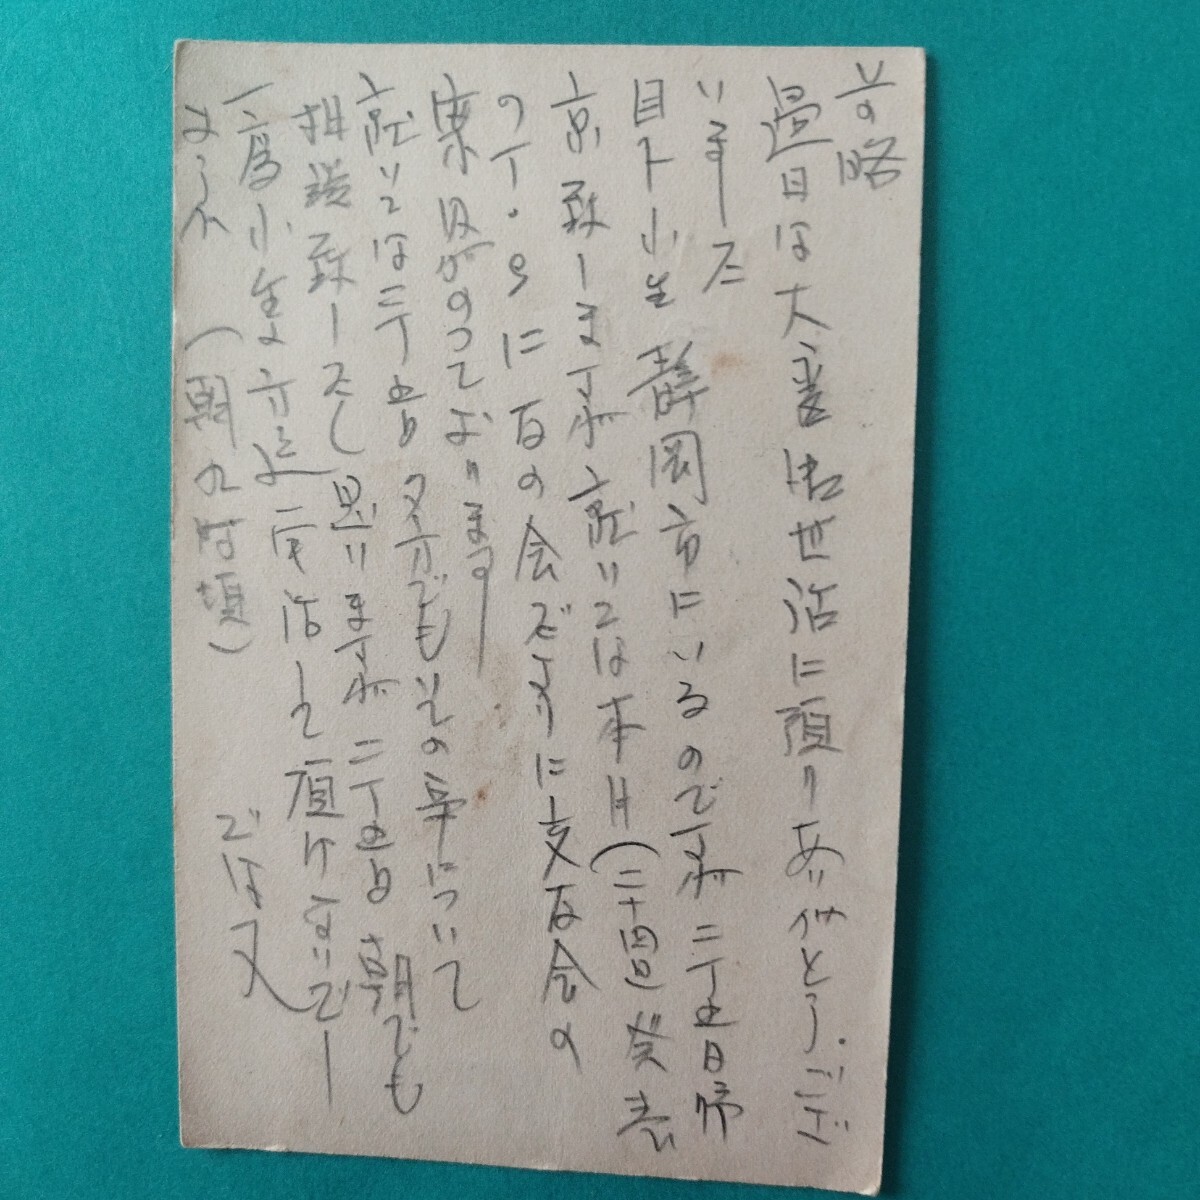 前略
過日は大変御世話に頂りありがとうござ
いました
目下小生静岡市にいるのですが二十五日帰
京致しますが就いては本月(二十四日)発表
の に友の会だよりに文友会の
案内がのっております
就いては二十五日夕方でもその事について
相談致したく思いますが二十五日朝でも
一度小生 電話して頂けないでし
ようか (朝九時頃) では又